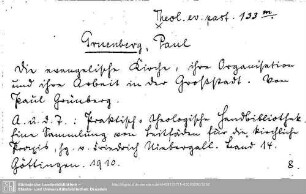 Theol. ev. past. 133 m
Gruenberg, Paul
Die evangelische Kirche, ihre Organisation
und ihre Arbeit in der Großstadt. Von
Paul Grünberg.
A. u. d. T.: Praktisch-theologische Handbibliothek.
Eine Sammlung von Leitfäden für die kirchliche
Praxis, hg. v. Friedrich Niebergall. Band 14.
Göttingen. 1910. 8.